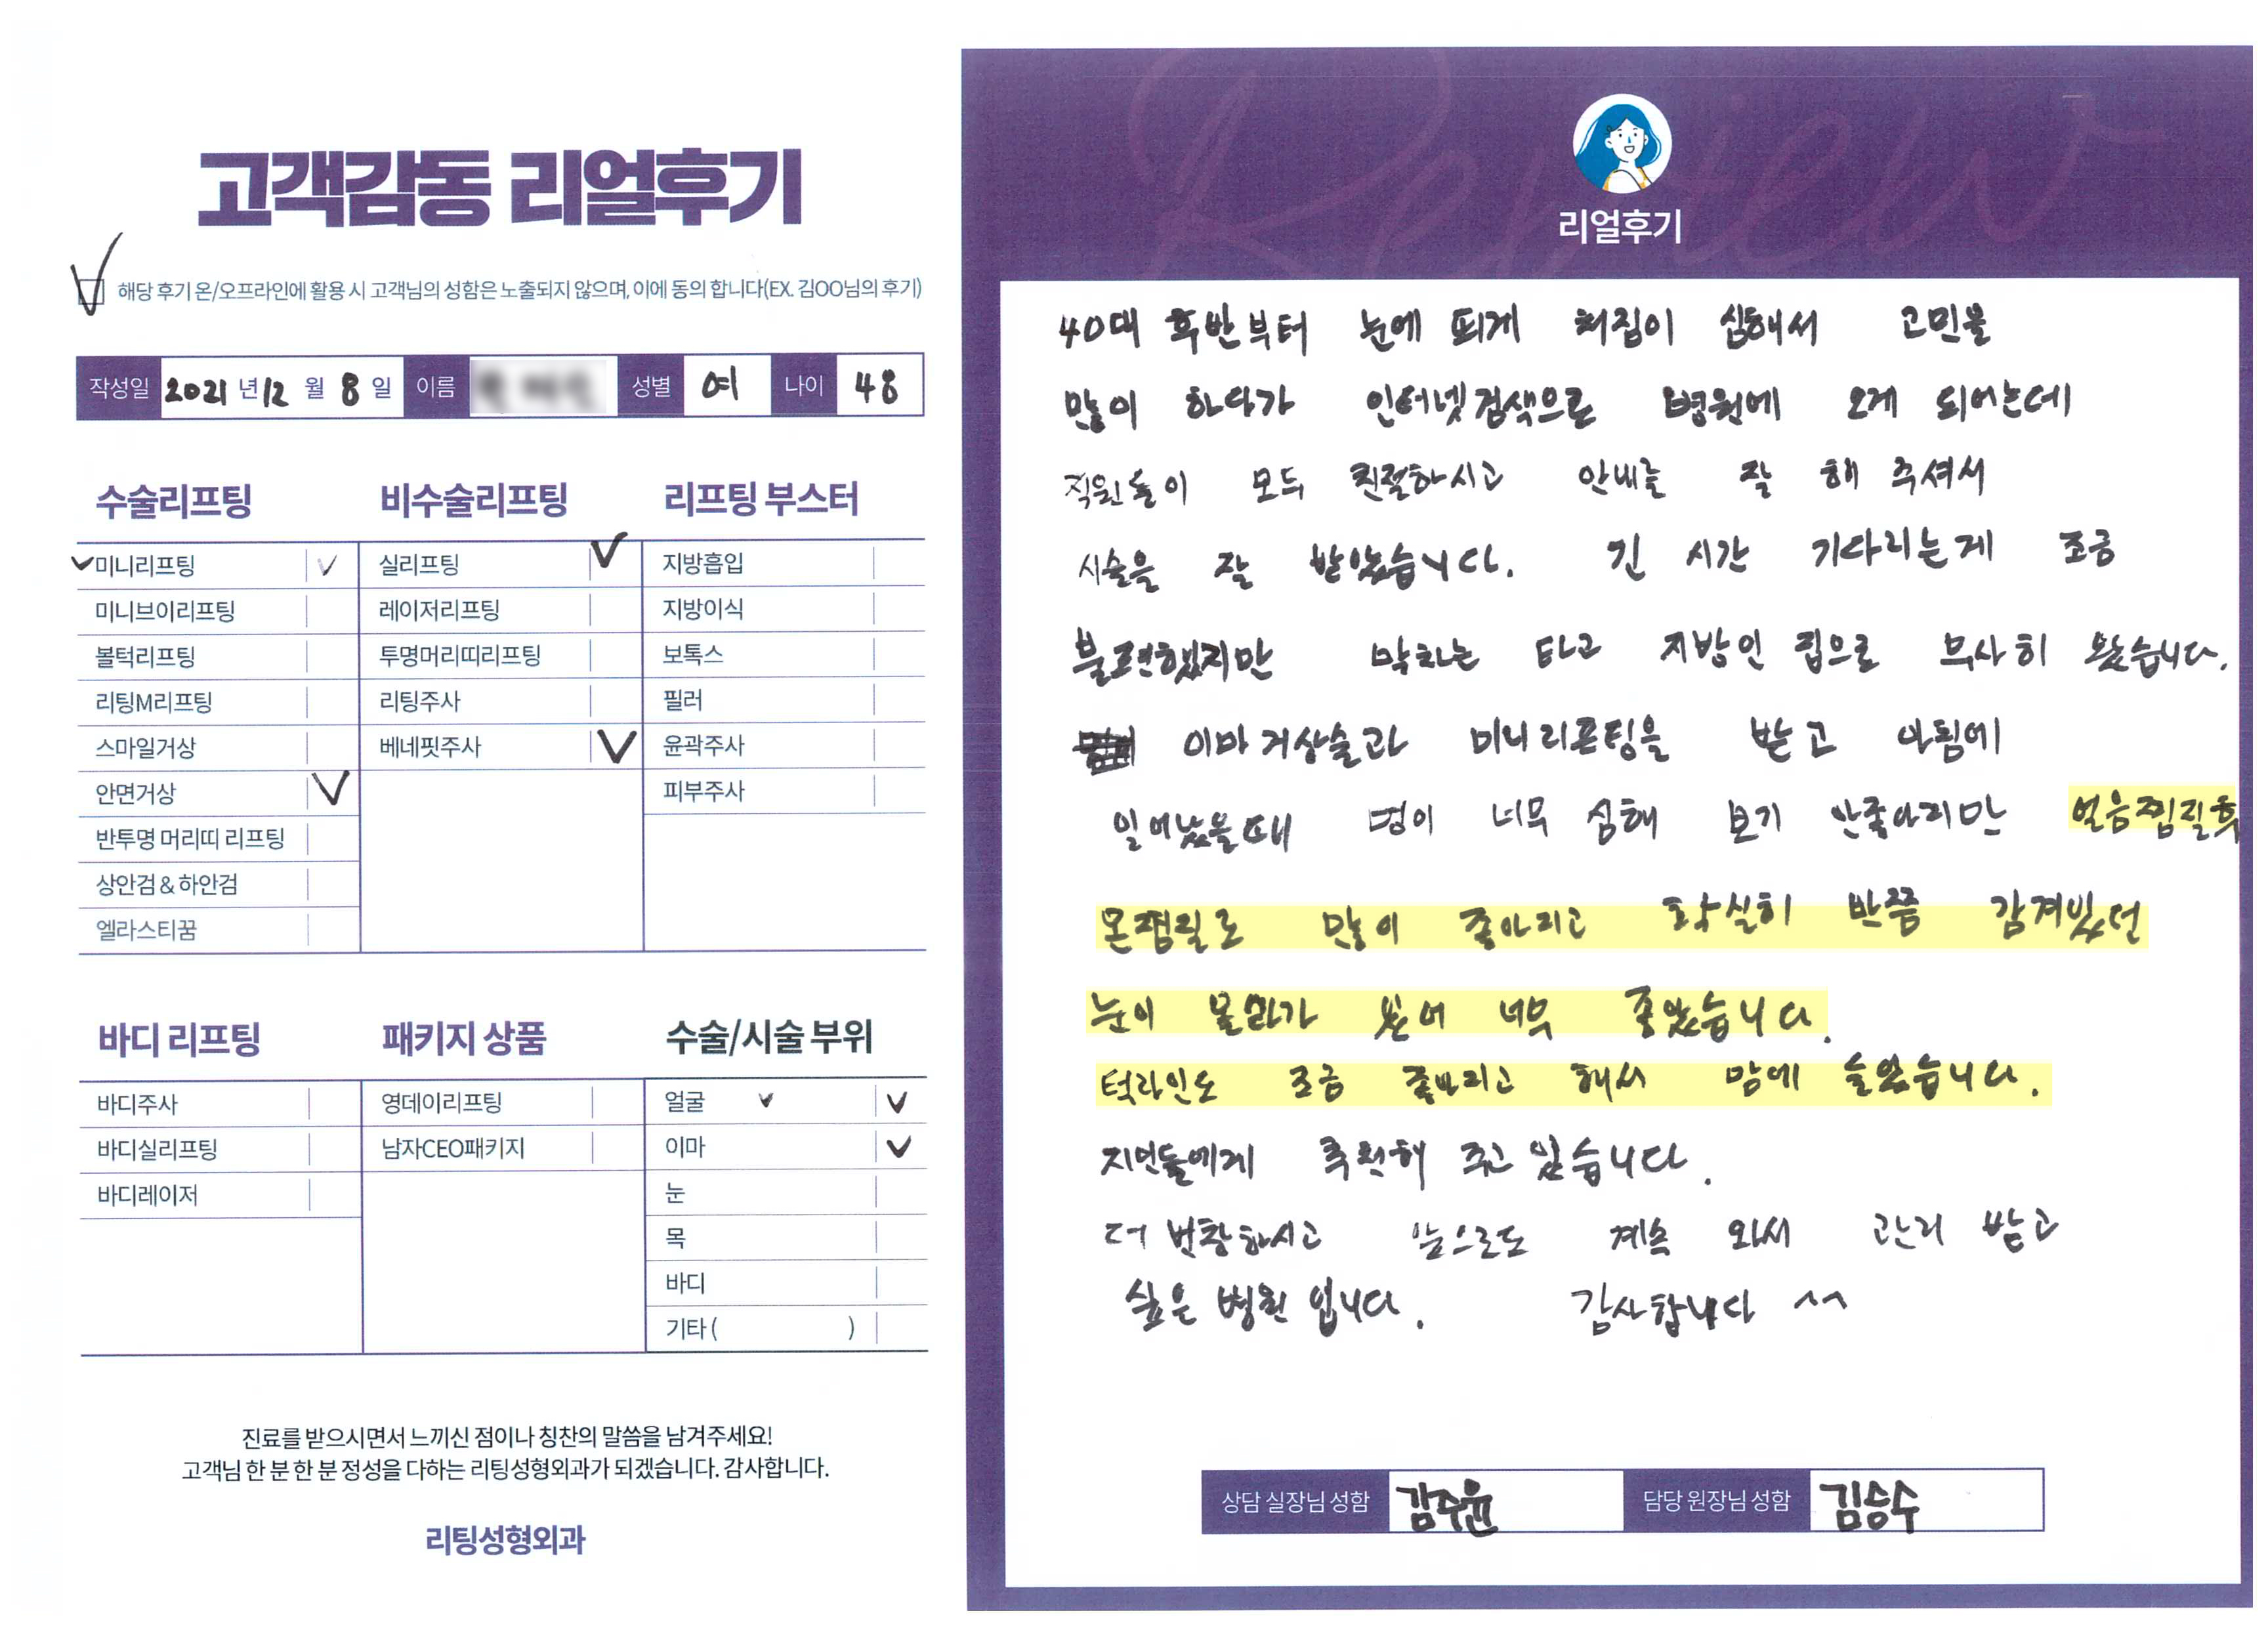 고객감동 리얼후기
해당 후기 온/오프라인에 활용 시 고객님의 성함은 노출되지 않으며, 이에 동의 합니다(EX. 김OO님의 후기)
작성일 2021 년 12 월 8 일 이름 성별 여 나이 48
수술리프팅
미니리프팅
미니브이리프팅
볼턱리프팅
리팅M리프팅
스마일거상
안면거상
반투명 머리띠 리프팅
상안검 & 하안검
엘라스티꿈
비수술리프팅
실리프팅
레이저리프팅
투명머리띠리프팅
리팅주사
베네핏주사
리프팅 부스터
지방흡입
지방이식
보톡스
필러
윤곽주사
피부주사
바디 리프팅
바디주사
바디실리프팅
바디레이저
패키지 상품
영데이리프팅
남자CEO패키지
수술/시술 부위
얼굴
이마
눈
목
바디
기타 ( )
진료를 받으시면서 느끼신 점이나 칭찬의 말씀을 남겨주세요!
고객님 한 분 한 분 정성을 다하는 리팅성형외과가 되겠습니다. 감사합니다.
리팅성형외과
Review
리얼후기
40대 후반부터 눈에 띄게 쳐짐이 심해서 고민을
많이 하다가 인터넷검색으로 병원에 오게 되어는데
직원들이 모두 친절하시고 안내를 잘 해 주셔서
시술을 잘 받았습니다. 긴 시간 기다리는게 조금
불편했지만 막차는 타고 지방인 집으로 무사히 왔습니다.
이마거상술과 미니리프팅을 받고 아침에
일어났을때 멍이 너무 심해 보기 안좋아지만 얼음찜질후
온찜질로 많이 좋아지고 확실히 반쯤 감겨있던
눈이 올라가 있어 너무 좋았습니다.
턱라인도 조금 좋아지고 해서 맘에 들었습니다.
지인들에게 추천해 주고 있습니다.
더 번창하시고 앞으로도 계속 와서 관리 받고
싶은 병원 입니다. 감사합니다 ^^
상담 실장님 성함 김수윤 담당 원장님 성함 김승수